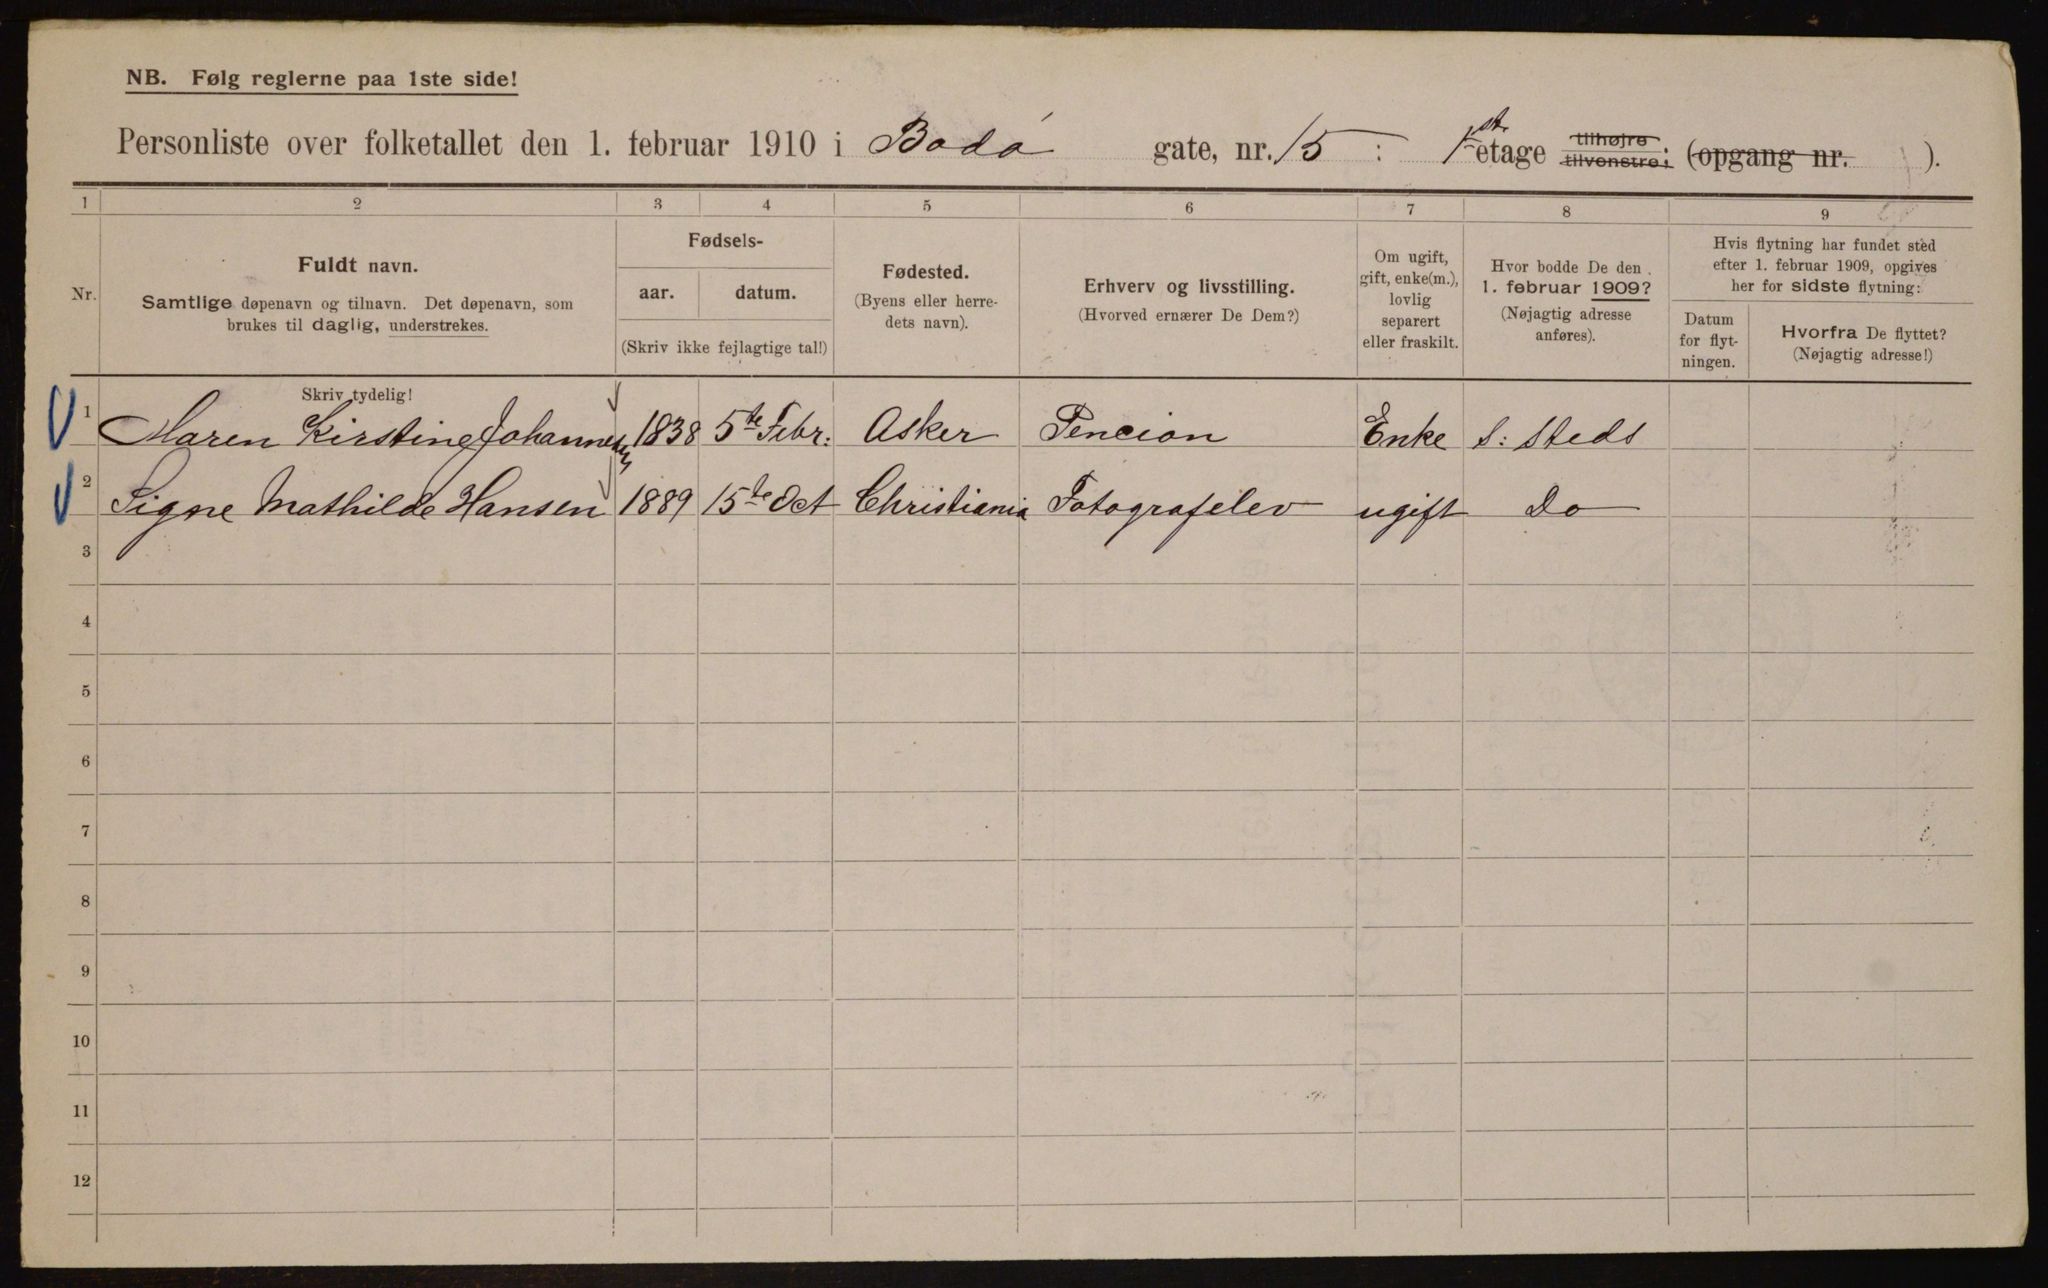 NB. Følg reglerne paa 1ste side!
Personliste over folketallet den 1. februar 1910 i Bodó gate, nr. 15 : 1ste etage tilhøjre. tilvenstre; (opgang nr. ).
1 2 3 4 5 6 7 8 9
Nr.
Fuldt navn.
Samtlige døpenavn og tilnavn. Det døpenavn, som
brukes til daglig, understrekes.
Fødsels-
aar. datum.
(Skriv ikke fejlagtige tal!)
Fødested.
(Byens eller herre-
dets navn).
Erhverv og livsstilling.
(Hvorved ernærer De Dem?)
Om ugift,
gift, enke(m.),
lovlig
separert
eller fraskilt.
Hvor bodde De den
1. februar 1909?
(Nøjagtig adresse
anføres).
Hvis flytning har fundet sted
efter 1. februar 1909, opgives
her for sidste flytning:
Datum
for flyt-
ningen.
Hvorfra De flyttet?
(Nøjagtig adresse!)
Skriv tydelig!
1 Maren Kirstine Johannesen 1838 5te Febr: Asker Pencion Enke s: steds
2 Signe Mathilde Hansen 1889 15te Oct Christiania Fotografelev ugift Do
3
4
5
6
7
8
9
10
11
12